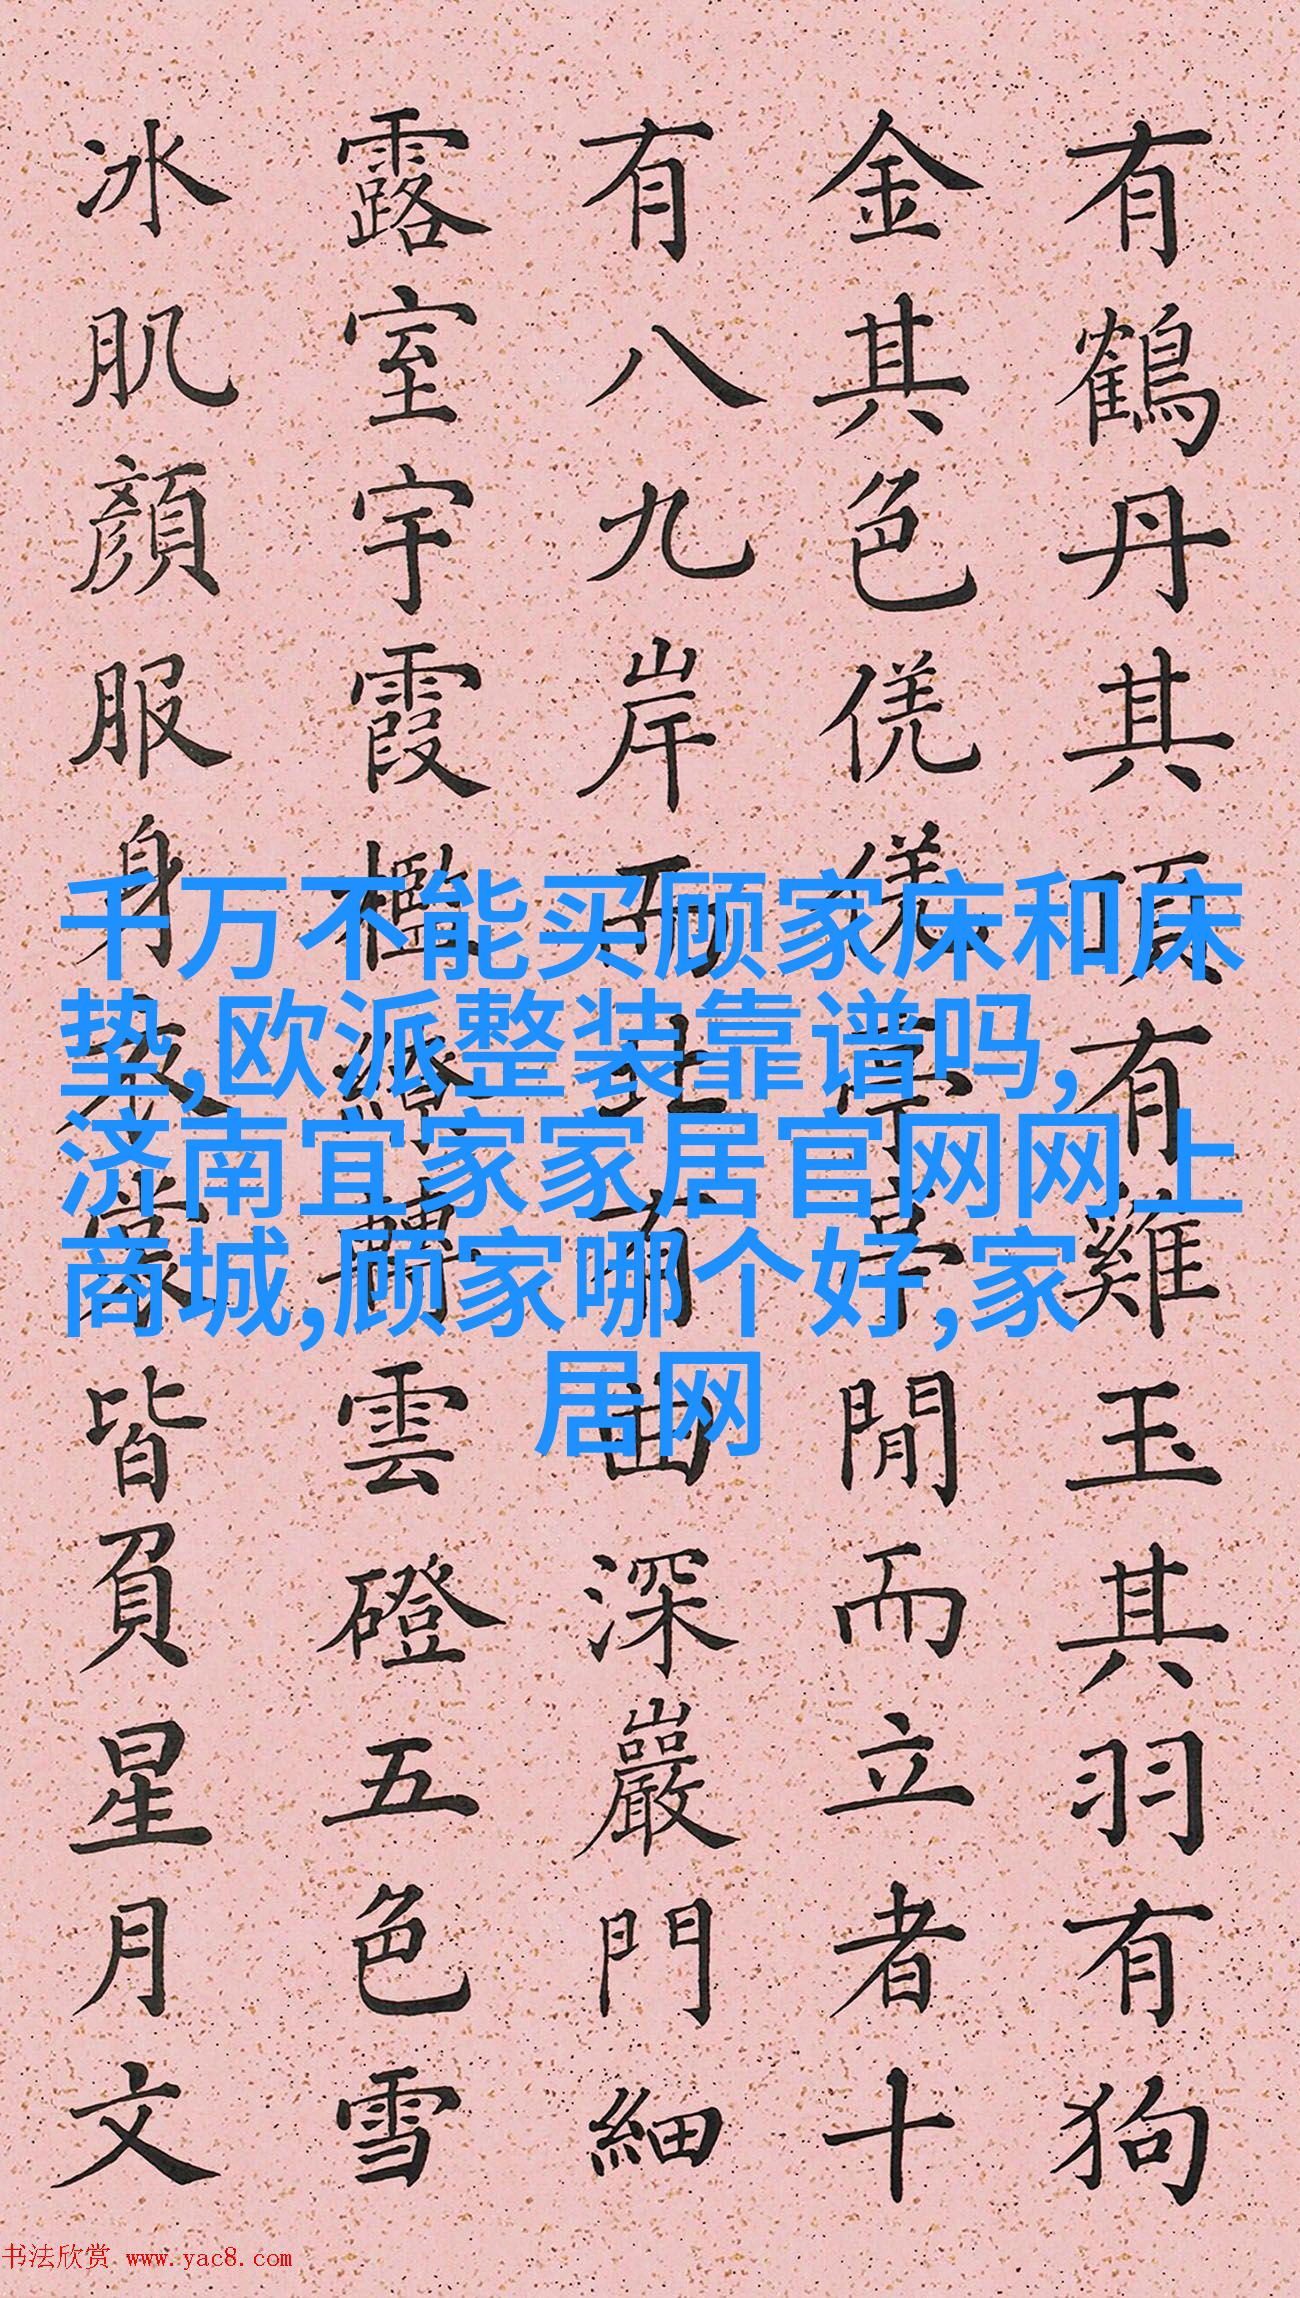 有鶴丹其頂有雞玉其羽有狗
金其色侁亭亭閒而立者十
有八九岸西北有曲深巖門細
露室宇霞檻轉雲磴五色雪
冰肌顏服身衣裳皆負星月文
千万不能买顾家床和床
垫,欧派整装靠谱吗,
济南宜家家居官网网上
商城,顾家哪个好,家
居网
书法欣赏 www.yac8.com